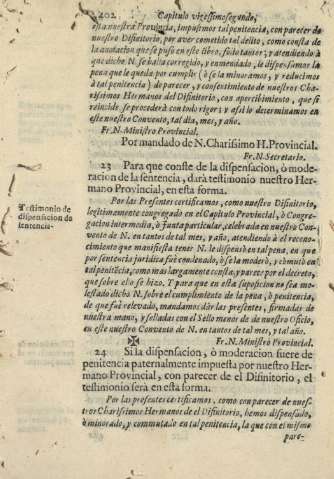 402 Capitulo vigessimosegundo,
esta nuestra Provincia, impusimos tal penitencia, con parecer de
nuestro Difinitorio, por aver cometido tal delito, como consta de
la anotacion que se puso en este libro, folio tantos; y atendiendo à
que dicho N. se halla corregido, y enmendado, le dispensamos la
pena que le queda por cumplir (ò se la minoramos, y reducimos
à tal penitencia) de parecer, y consentimiento de nuestros Cha-
rissimos Hermanos del Difinitorio, con apercibimiento, que si
reincide se procederà con todo rigor: y assi lo determinamos en
este nuestro Convento, tal dia, mes, y año.
Fr. N. Ministro Provincial.
Por mandado de N. Charissimo H. Provincial.
Fr. N. Secretario.
23 Para que conste de la dispensacion, ò mode-
racion de la sentencia, darà testimonio nuestro Her-
mano Provincial, en esta forma.
Testimonio de
dispensacion de
sentencia.
Por las Presentes certificamos, como nuestro Difinitorio,
legitimamente congregado en el Capitulo Provincial, ò Congre-
gacion intermedia, ò Junta particular, celebrada en nuestro Con-
vento de N. en tantos de tal mes, y año, atendiendo à el recono-
cimiento que manifiesta tener N. le dispensò en tal pena, en que
por sentencia juridica fue condenado, ò se la moderò, y comutò en
tal penitēcia, como mas largamente consta, y parece por el decreto,
que sobre ello se hizo. Y para que en esta suposicion no sea mo-
lestado dicho N. sobre el cumplimiento de la pena, ò penitencia,
de que fue relevado, mandamos dàr las presentes, firmadas de
nuestra mano, y selladas con el Sello menor de de nuestro Oficio,
en este nuestro Convento de N. en tantos de tal mes, y tal año.
✠ Fr. N. Ministro Provincial.
24 Si la dispensacion, ò moderacion fuere de
penitencia paternalmente impuesta por nuestro Her-
mano Provincial, con parecer de el Difinitorio, el
testimonio serà en esta forma.
Por las presentes certificamos, como con parecer de nues-
tros Charissimos Hermanos de el Difinitorio, hemos dispensado,
ò minorado, y commutado en tal penitencia, la que con el mismo
pare-